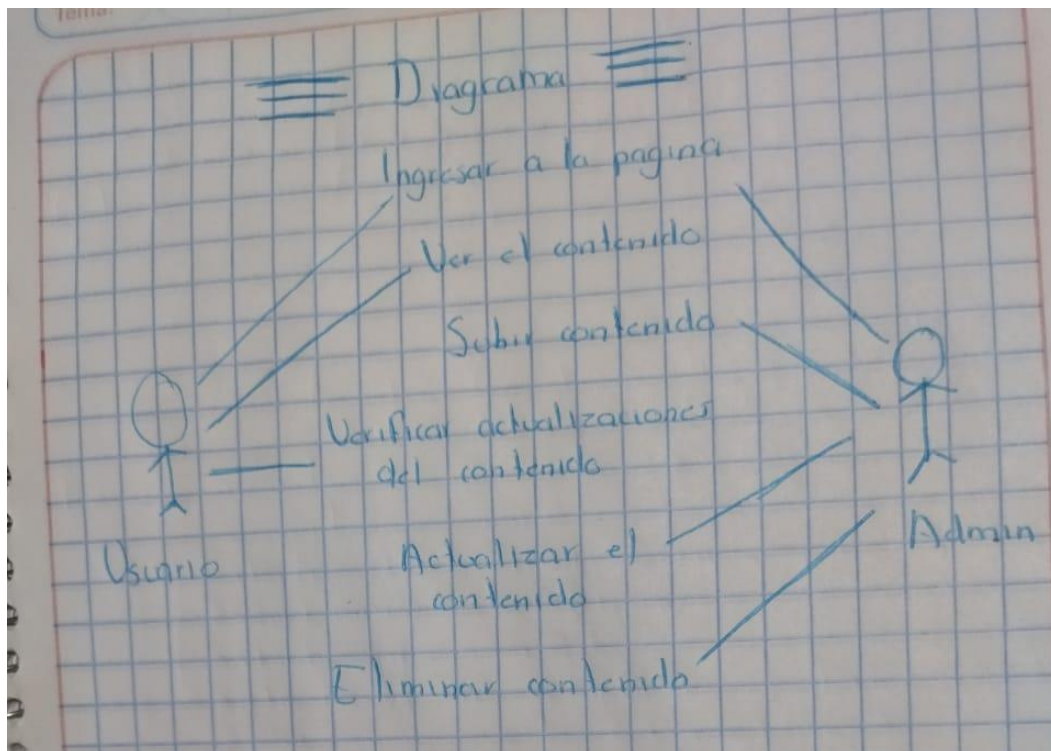 Tema:
Diagrama
Ingresar a la pagina
Ver el contenido
Subir contenido
Verificar actualizaciones
del contenido
Usuario
Actualizar el
contenido
Admin
Eliminar contenido